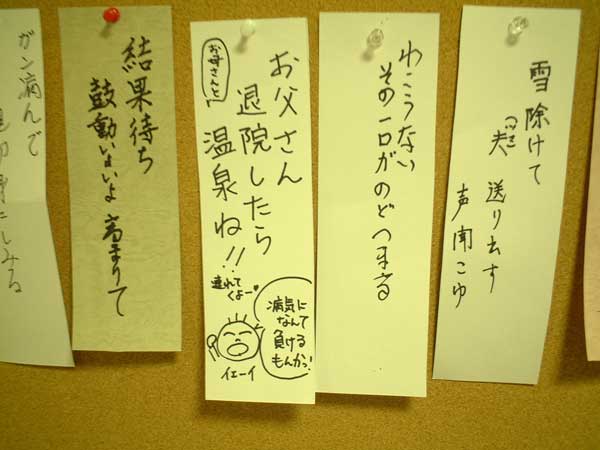 雪除けて
夫 送り出す
つま
声聞こゆ
その一口がのどつまる
お父さん
退院したら
温泉ね!!
お母さんと
連れて
くよー♥
病気に
なんて
負ける
もんかっ!
イェーイ
結果待ち
鼓動いよいよ 高まりて
ガン病んで
にしみる